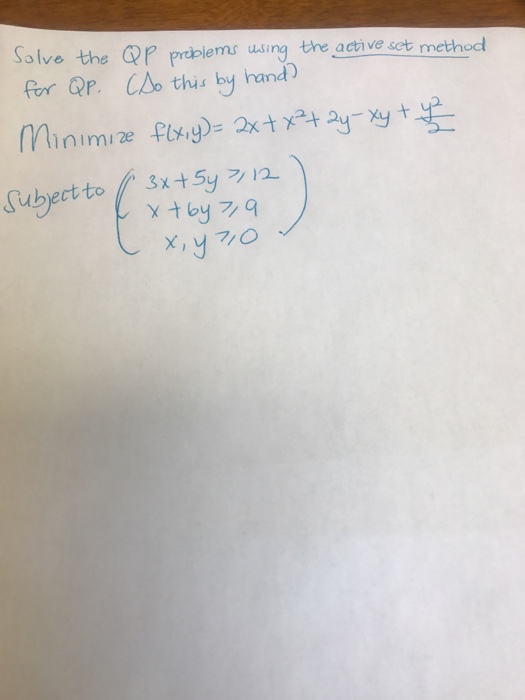 Solve the QP problems using the active set method
for QP. (Do this by hand)
Minimize f(x,y)= 2x+x²+2y-xy+y²/2
Subject to ( 3x+5y ≥ 12
x+6y ≥ 9
x,y ≥ 0 )